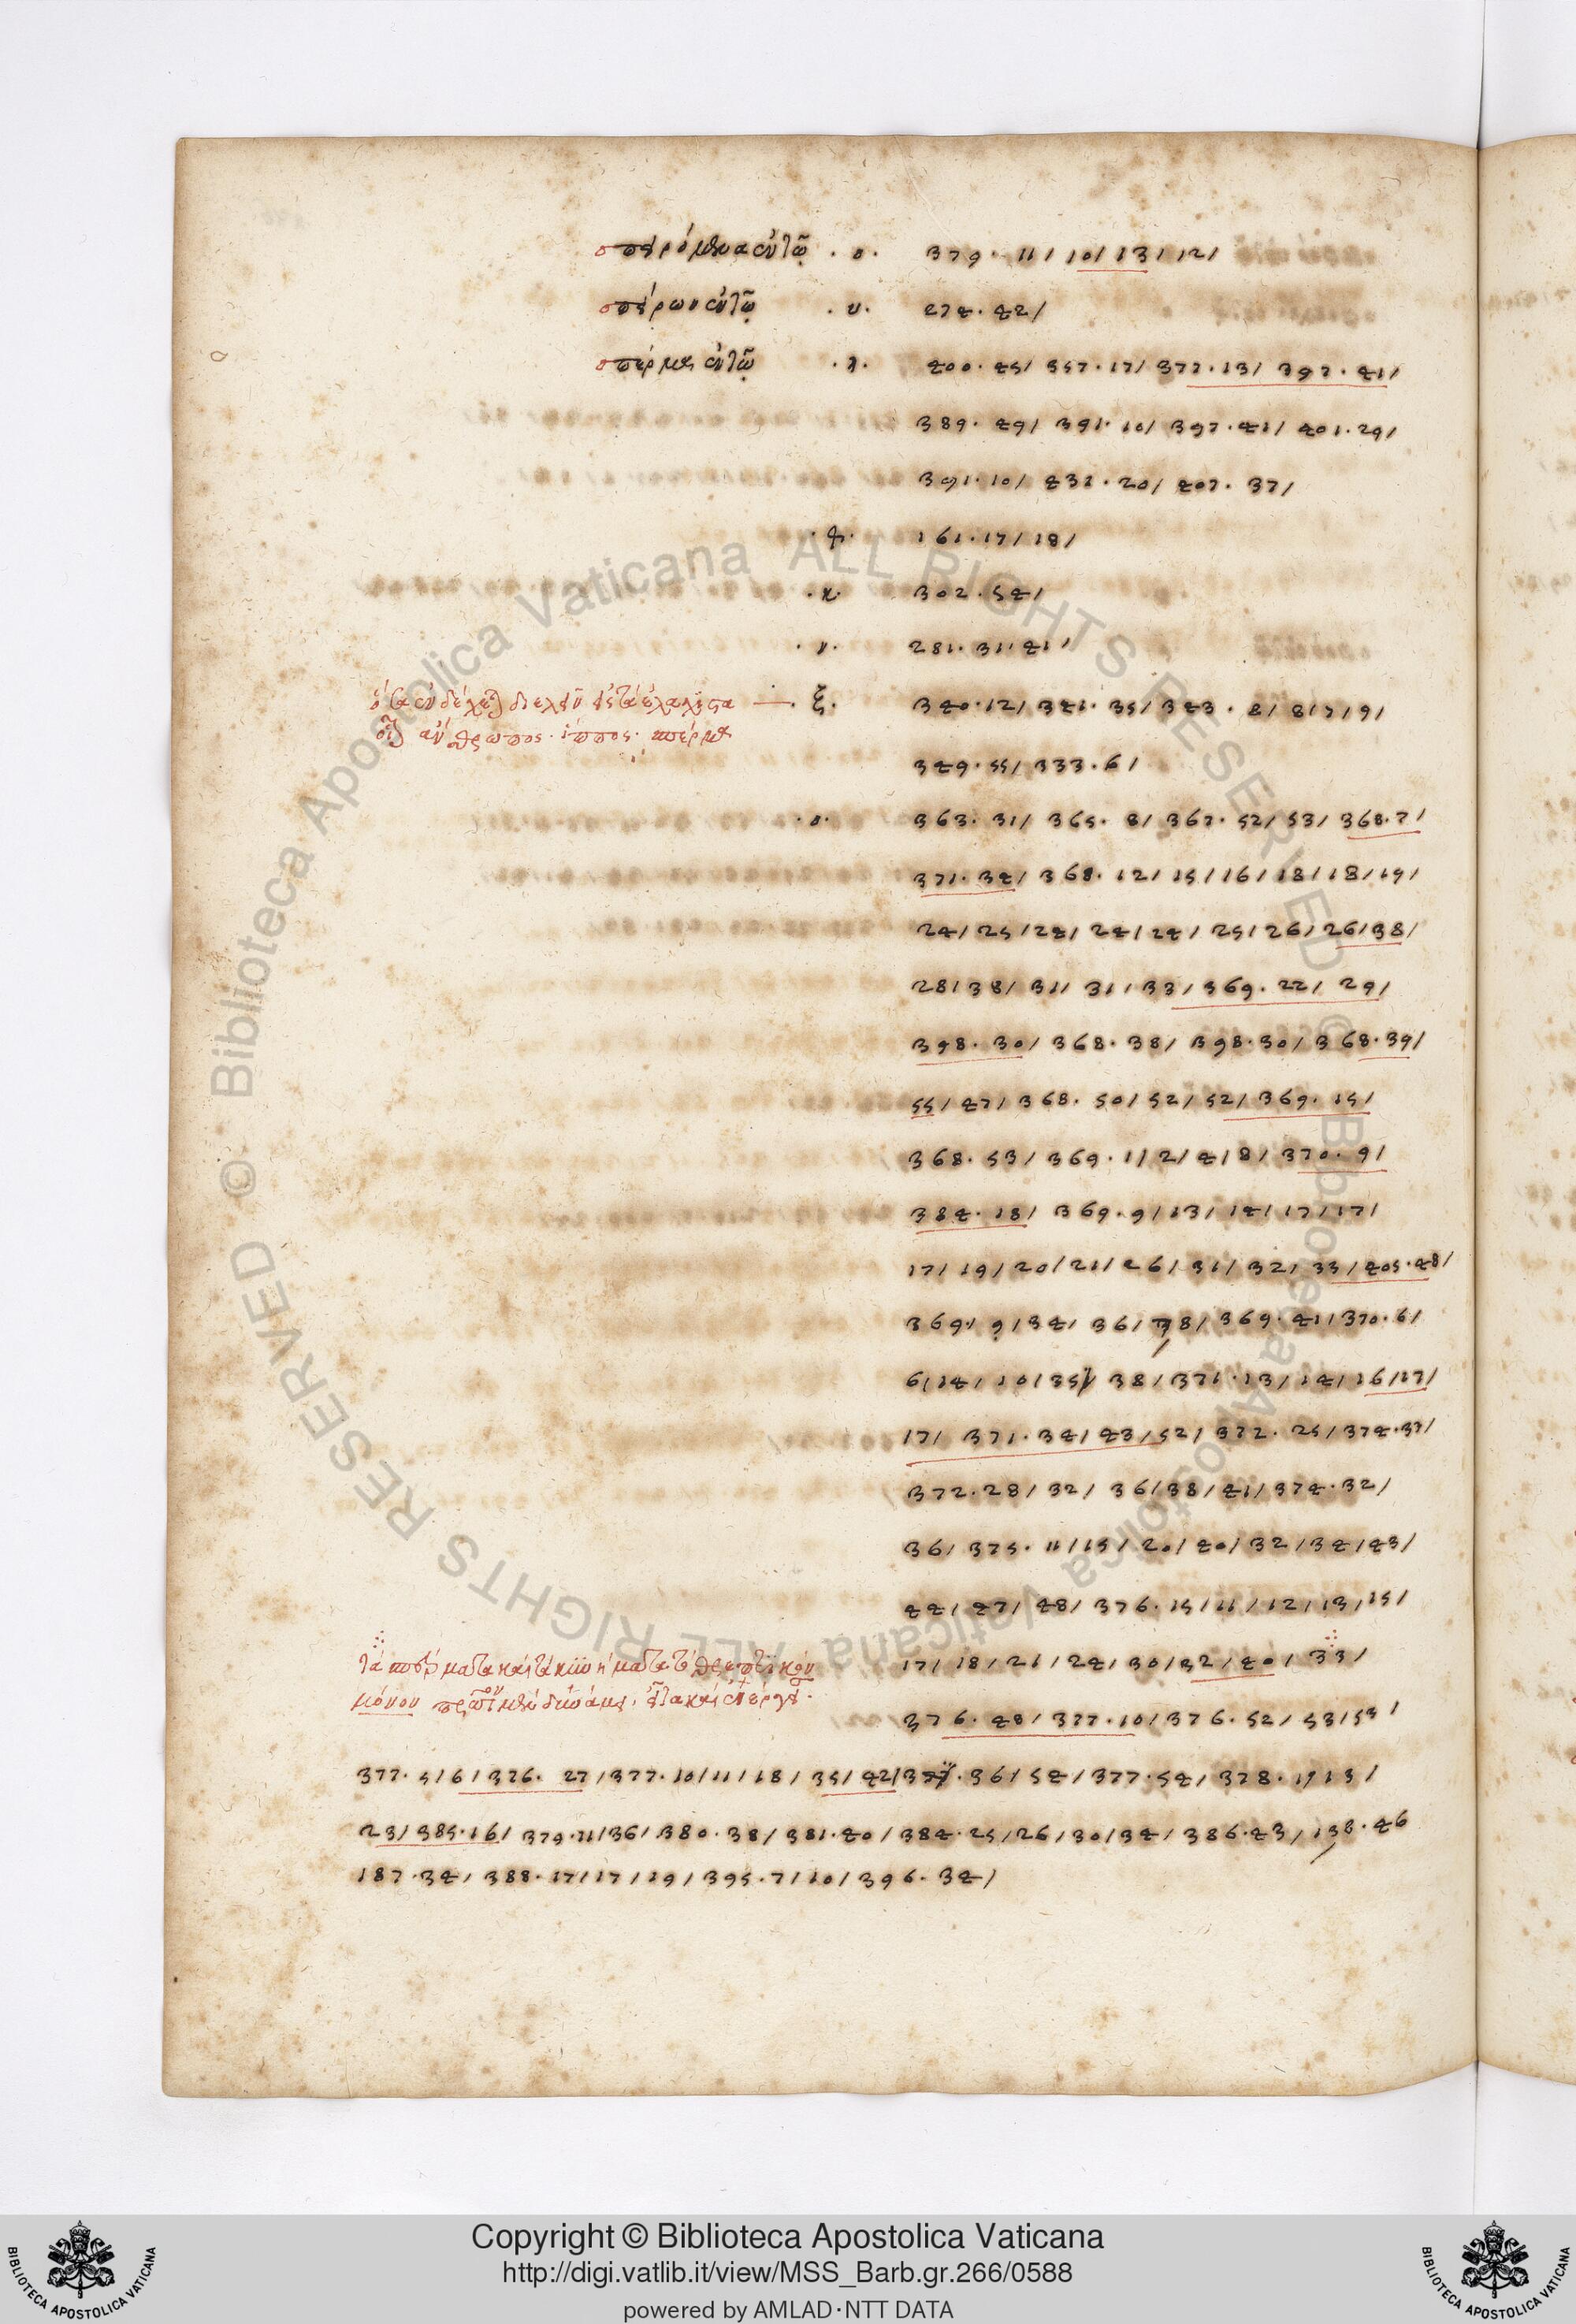 σπειρόμενα ἐν τῷ · ο · 379 · 11/ 10/ 13/ 12/
σπείρων ἐν τῷ · υ · 274 · 42/
σπέρμα ἐν τῷ 400 · 45/ 357 · 17/ 377 · 13/ 397 · 41/
389 · 49/ 391 · 10/ 397 · 41/ 401 · 29/
391 · 10/ 431 · 20/ 407 · 37/
161 · 17/ 18/
· κ · 302 · 54/
· ν · 281 · 31/ 41/
· ξ · 340 · 12/ 341 · 35/ 343 · 8/ 8/ 7/ 9/
ἄνθρωπος · ἵππος · σπέρμα
349 · 55/ 333 · 6/
· ο · 363 · 31/ 365 · 8/ 367 · 52/ 53/ 368 · 7/
371 · 34/ 368 · 12/ 15/ 16/ 18/ 18/ 19/
24/ 25/ 24/ 24/ 24/ 25/ 26/ 26/ 38/
28/ 38/ 31/ 31/ 33/ 369 · 22/ 29/
398 · 30/ 368 · 38/ 398 · 30/ 368 · 39/
55/ 47/ 368 · 50/ 52/ 52/ 369 · 15/
368 · 53/ 369 · 1/ 2/ 4/ 8/ 370 · 9/
384 · 18/ 369 · 9/ 13/ 14/ 17/ 17/
17/ 19/ 20/ 21/ 26/ 31/ 32/ 33/ 405 · 48/
369 · 9/ 34/ 36/ 38/ 369 · 41/ 370 · 6/
6/ 14/ 10/ 35/ 38/ 371 · 13/ 14/ 16/ 17/
17/ 371 · 34/ 43/ 52/ 372 · 25/ 374 · 37/
372 · 28/ 32/ 36/ 38/ 41/ 374 · 32/
36/ 375 · 11/ 15/ 20/ 40/ 32/ 34/ 43/
44/ 47/ 48/ 376 · 15/ 11/ 12/ 13/ 15/
τὰ σπέρματα καὶ τὰ κυήματα τὸ θρεπτικὸν 17/ 18/ 21/ 24/ 30/ 32/ 40/ 33/
μόνον
376 · 48/ 377 · 10/ 376 · 52/ 53/ 53/
377 · 5/ 6/ 376 · 27/ 377 · 10/ 11/ 18/ 35/ 42/ 36/ 54/ 377 · 54/ 378 · 19 13/
23/ 385 · 16/ 379 · 11/ 36/ 380 · 38/ 381 · 40/ 384 · 25/ 26/ 30/ 34/ 386 · 43/ 138 · 46
187 · 34/ 388 · 17/ 17/ 19/ 395 · 7/ 10/ 396 · 34/
© Biblioteca Apostolica Vaticana ALL RIGHTS RESERVED © Biblioteca Apostolica Vaticana ALL RIGHTS RESERVED
Copyright © Biblioteca Apostolica Vaticana
http://digi.vatlib.it/view/MSS_Barb.gr.266/0588
powered by AMLAD·NTT DATA
BIBLIOTECA APOSTOLICA VATICANA
BIBLIOTECA APOSTOLICA VATICANA